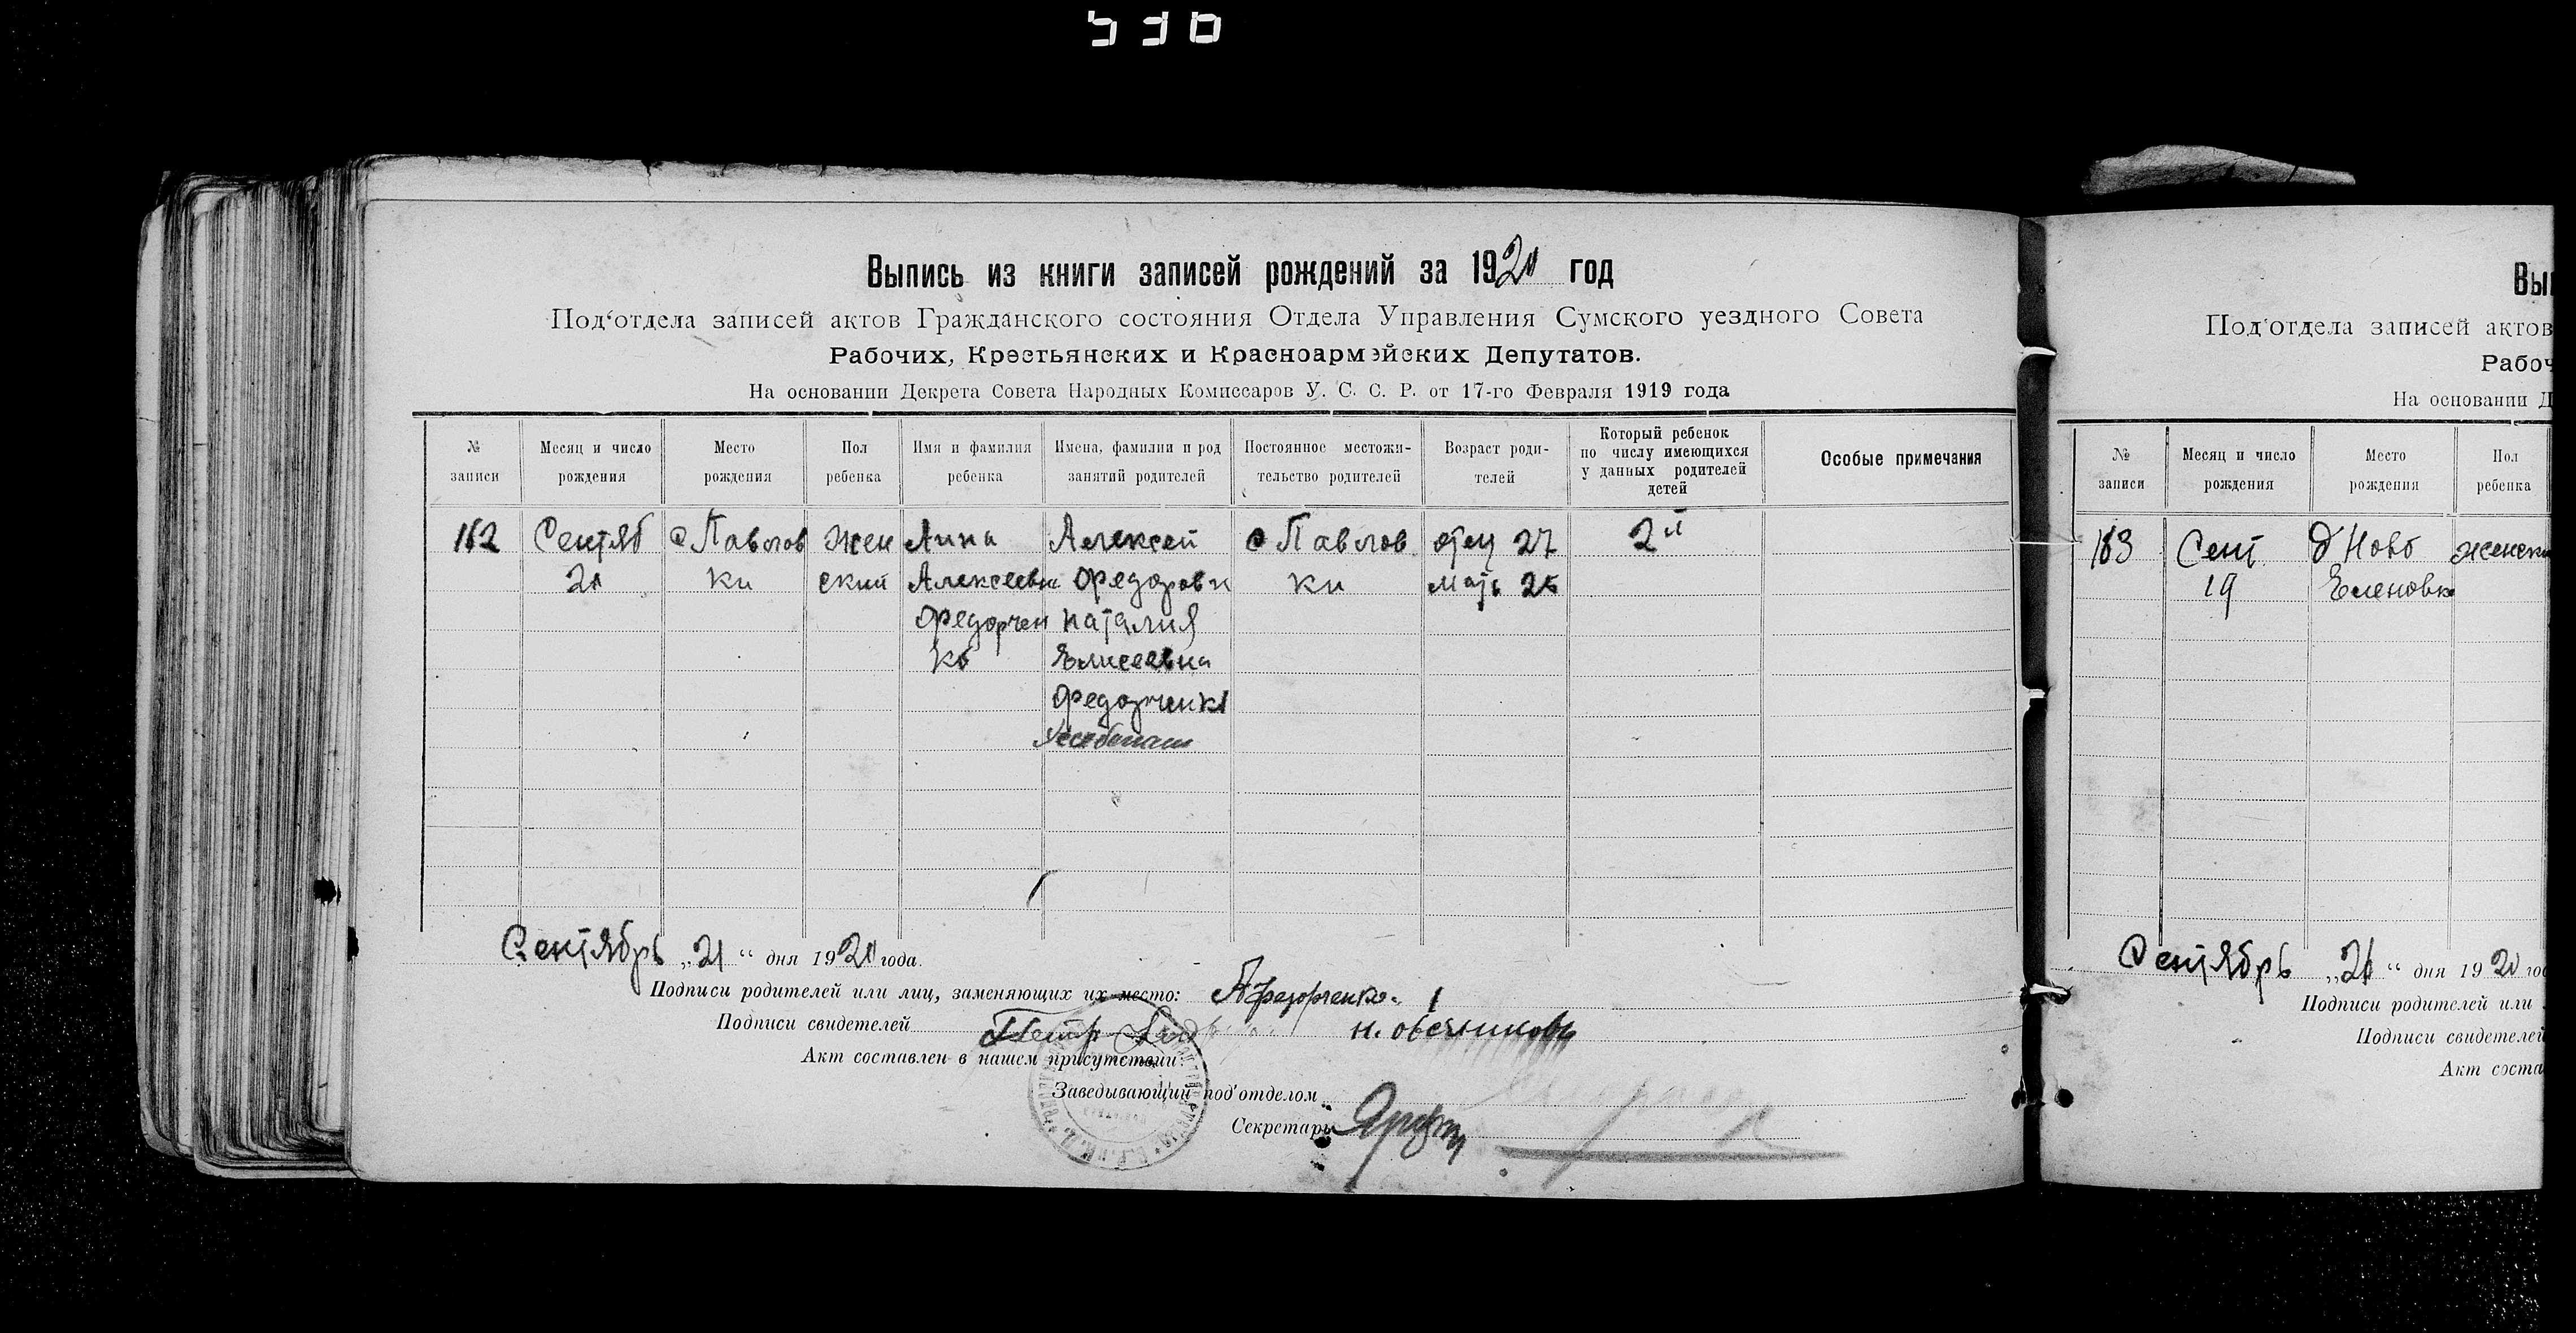 530
Выпись из книги записей рождений за 1920 год
Под'отдела записей актов Гражданского состояния Отдела Управления Сумского уездного Совета
Рабочих, Крестьянских и Красноармейских Депутатов.
На основании Декрета Совета Народных Комиссаров У. С. С. Р. от 17-го Февраля 1919 года
№ записи
Месяц и число рождения
Место рождения
Пол ребенка
Имя и фамилия ребенка
Имена, фамилии и род занятий родителей
Постоянное местожительство родителей
Возраст родителей
Который ребенок по числу имеющихся у данных родителей детей
Особые примечания
162
Сентяб
20
с Павлов
ки
жен
ский
Анна
Алексеевна
Федорчен
ко
Алексей
Федорови
Наталия
Елисеевна
Федорченк
с Павлов
ки
отец 27
мать 25
2й
Сентябрь „21“ дня 1920 года.
Подписи родителей или лиц, заменяющих их место: А Федорченко
Подписи свидетелей Петр Н. Овсянников
Акт составлен в нашем присутствии:
Заведывающий под'отделом
Секретарь
Вы
Под'отдела записей актов
Рабоч
На основании Д
№ записи
Месяц и число рождения
Место рождения
Пол ребенка
163
Сент
19
д Ново
Еленовка
женски
Сентябрь „21“ дня 1920 го
Подписи родителей или
Подписи свидетелей
Акт соста